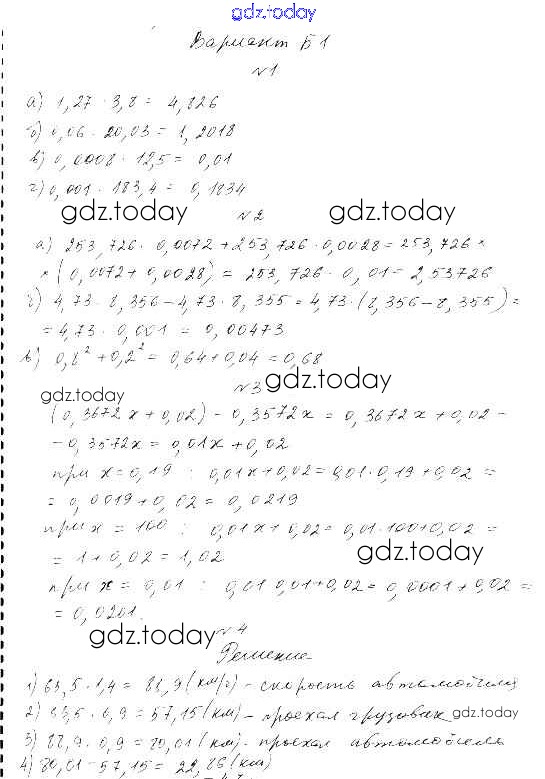 gdz.today
Вариант Б1
№1
а) 1,27 · 3,8 = 4,826
б) 0,06 · 20,03 = 1,2018
в) 0,0008 · 12,5 = 0,01
г) 0,001 · 183,4 = 0,1834
gdz.today gdz.today
№2
а) 253,726 · 0,0072 + 253,726 · 0,0028 = 253,726 ×
× (0,0072 + 0,0028) = 253,726 · 0,01 = 2,53726
б) 4,73 · 8,356 – 4,73 · 8,355 = 4,73 · (8,356 – 8,355) =
= 4,73 · 0,001 = 0,00473
в) 0,8² + 0,2² = 0,64 + 0,04 = 0,68
№3 gdz.today
gdz.today
(0,3672x + 0,02) – 0,3572x = 0,3672x + 0,02 –
– 0,3572x = 0,01x + 0,02
при x = 0,19 : 0,01x + 0,02 = 0,01 · 0,19 + 0,02 =
= 0,0019 + 0,02 = 0,0219
при x = 100 : 0,01x + 0,02 = 0,01 · 100 + 0,02 =
= 1 + 0,02 = 1,02
gdz.today
при x = 0,01 : 0,01 0,01 + 0,02 = 0,0001 + 0,02 =
= 0,0201.
gdz.today №4
Решение
1) 63,5 · 1,4 = 88,9 (км/ч) – скорость автомобиля
2) 63,5 · 0,9 = 57,15 (км) – проехал грузовик gdz.today
3) 88,9 · 0,9 = 80,01 (км) – проехал автомобиль
4) 80,01 – 57,15 = 22,86 (км)